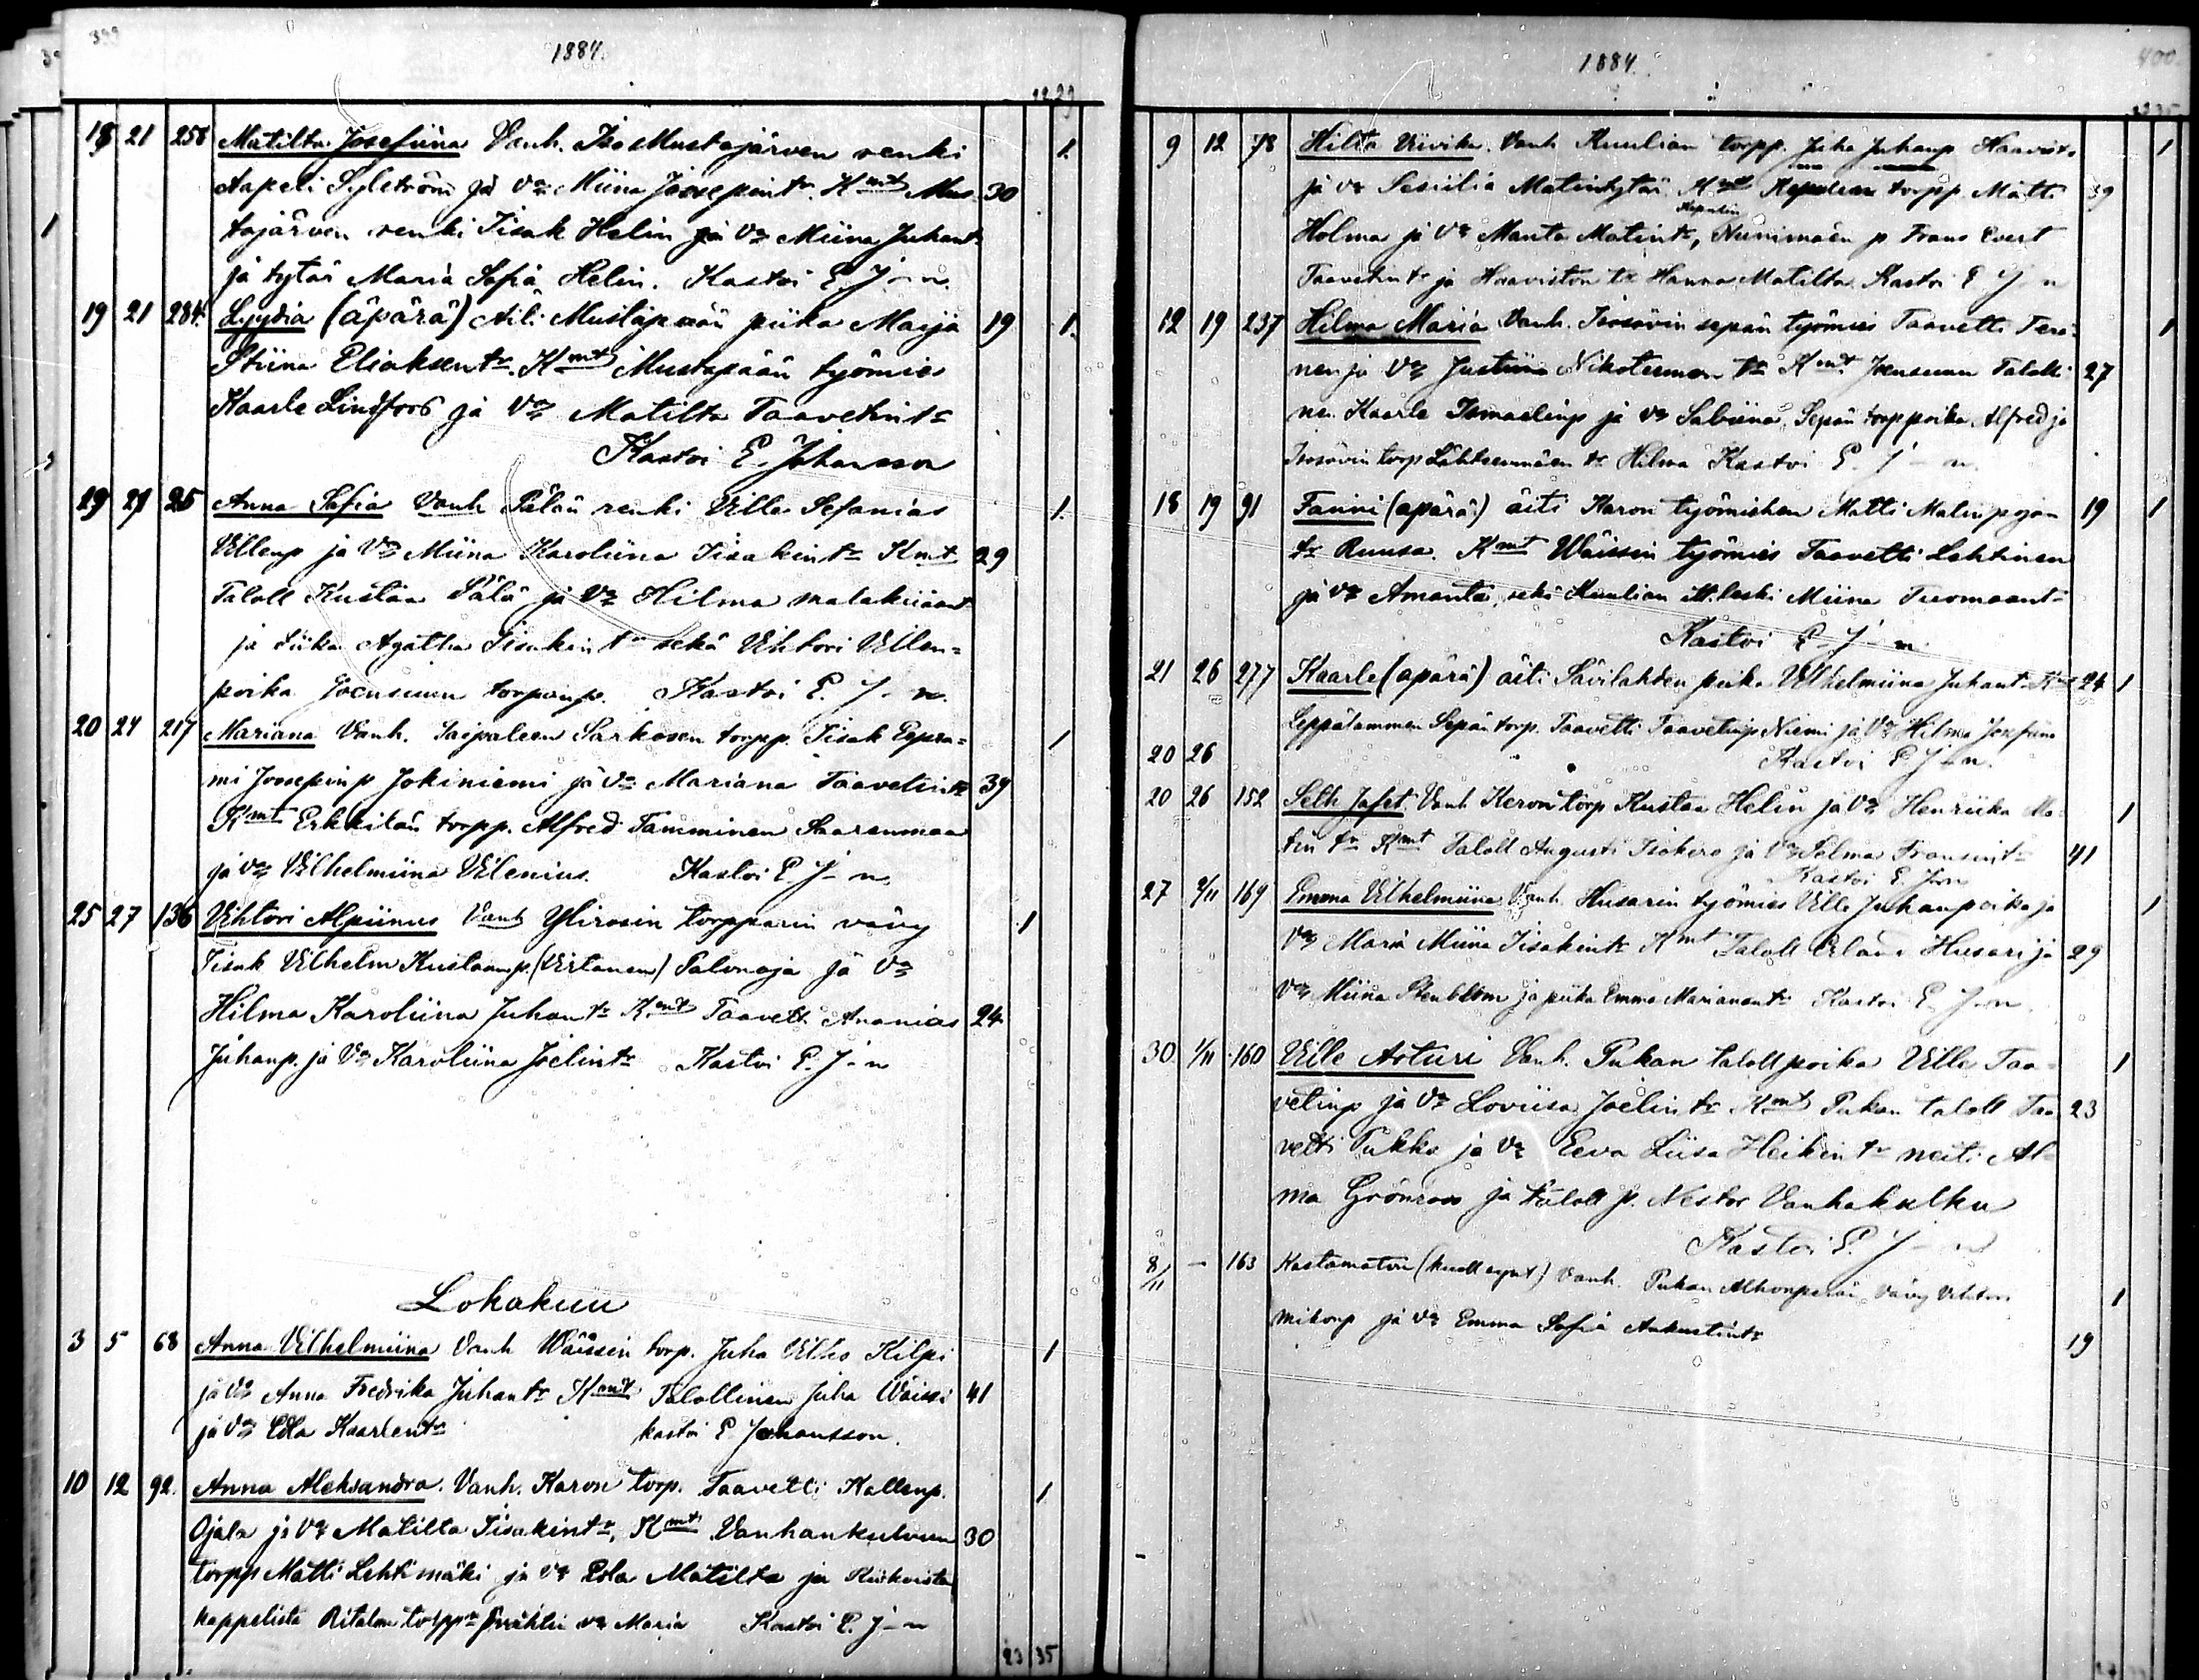 399
1884.
22 29
18 21 258 Matilta Josefiina Vanh. Iso Mustajärven renki 1.
Aapeli Sylström ja Vo Miina Joosepint. Kmt Mus- 30
tajärven renki Iisak Helin ja Vo Miina Juhant
ja tytär Maria Sofia Helin. Kastoi E. J-n.
19 21 284. Lyydia (äpärä) Äiti Mustapään piika Marja 19 1.
Stiina Eliaksentr. Kmt Mustapään työmies
Kaarle Lindfors ja Vo Matilta Taavetintr
Kastoi E. Johansson
27 25 Anna Sofia Vanh Pälän renki Ville Sefanias 1.
Villenp ja Vo Miina Karoliina Iisakintr Kmt 29
Taloll Kustaa Pälä ja Vo Hilma
ja Piika Agatha Iisakintr sekä Vihtori Villen=
poika Joensuun torpanp. Kastoi E. J-n.
20 217 Mariana Vanh. Sarkosen torpp. Iisak Eepra= 1
mi Joosepinp Jokiniemi ja Vo Mariana Taavetintr 39
Kmt Erkkilän torpp. Alfred Tamminen Saarenmaa
ja Vo Vilhelmiina Vilenius. Kastoi E. J-n.
25 27 136 Vihtori Alpiinus Vanh Ylirosin torpparin vävy 1
Iisak Vilhelm Kustaanp. (Virtanen) Palonoja ja Vo
Hilma Karoliina Juhantr Kmt Taavett Ananias 24
Juhanp. ja Vo Karoliina Joelintr Kastoi E. J-n
Lokakuu
3 5 68 Anna Vilhelmiina Vanh Wäissin torp. Juha Vilho Kilpi 1
ja Vo Anna Fredrika Juhantr Kmt Talollinen Juha Wäissi 41
ja Vo Edla Kaarlentr kastoi E Johansson.
10 12 92. Anna Aleksandra. Vanh. Karon torp. Taavetti Kallenp. 1
Ojala ja Vo Matilta Iisakintr, Kmt Vanhankulvun 30
torpp Matti Lehtimäki ja Vo Edla Matilta ja Kiikoisten
kappelista Ritalan torppr vo Maria Kastoi E. J-n
23 35
400
1884.
23 35
9 12 78 Hilta Viivika. Vanh Kuulian torpp. Juha Juhanp Haavisto 1
ja vo Sesiilia Matintytär Kmt torpp. Matti 39
Holma ja Vo Manta Matintr, Niinimäen p Frans Evert
Taavetintr ja Haaviston tr Hanna Matilta Kastoi E. J-n
12 19 237 Hilma Maria Vanh. Isosävin sepän työmies Taavetti 1
nen ja Vo Justiina Nikoteemon tr Kmt Joensuun Talolli 27
nen Kaarle Ismaelinp ja vo Sabiina, Sepän torppoika Alfred ja
Isosävin torp Lähteenmäen tr Hilma Kastoi E. J-n.
18 19 91 Fanni (äpärä) äiti Karon työmiehen Matti Matinpojan 19 1
tr Ruusa. Kmt Wäissin työmies Taavetti Lehtinen
ja Vo Amanta, sekä Kuulian itt. leski Miina Tuomaantr
Kastoi E. J-n.
21 26 277 Kaarle (äpärä) äiti Sävilahden piika Vilhelmiina Juhantr Kmt 24 1
Leppälammen Sepän torp. Taavetti Taavetinp Niemi ja Vo Hilma Josefiina
20 26 Kastoi E. J-n.
20 26 152 Seth Jafet Vanh Keron torp Kustaa Helin ja Vo Henriika Ma- 1
tin tr Kmt Taloll Augusti Isokero ja Vo Selma Fransintr 41
Kastoi E. J-n
27 2/11 169 Emma Vilhelmiina Vanh. Husarin työmies Ville Juhanpoika ja 1
Vo Maria Miina Iisakintr Kmt Taloll Erland Husari ja 29
Vo Miina Stenblom ja piika Emma Marianantr Kastoi E. J-n.
30 1/11 160 Ville Arturi Vanh. Pukan talollpoika Ville Taa- 1
vetinp ja Vo Loviisa Joelintr Kmt Pukan taloll Taa 23
vetti Pukka ja Vo Eeva Liisa Heikintr neiti Al-
ma Grönroos ja taloll p. Nestor Vanhakulku
Kastoi E. J-n
8/11 - 163 Kastamatoin (kuoll synt) Vanh. Pukan Alhonperän vävy Vihtori 1
Mikonp ja Vo Emma Sofia Aukustintr 19